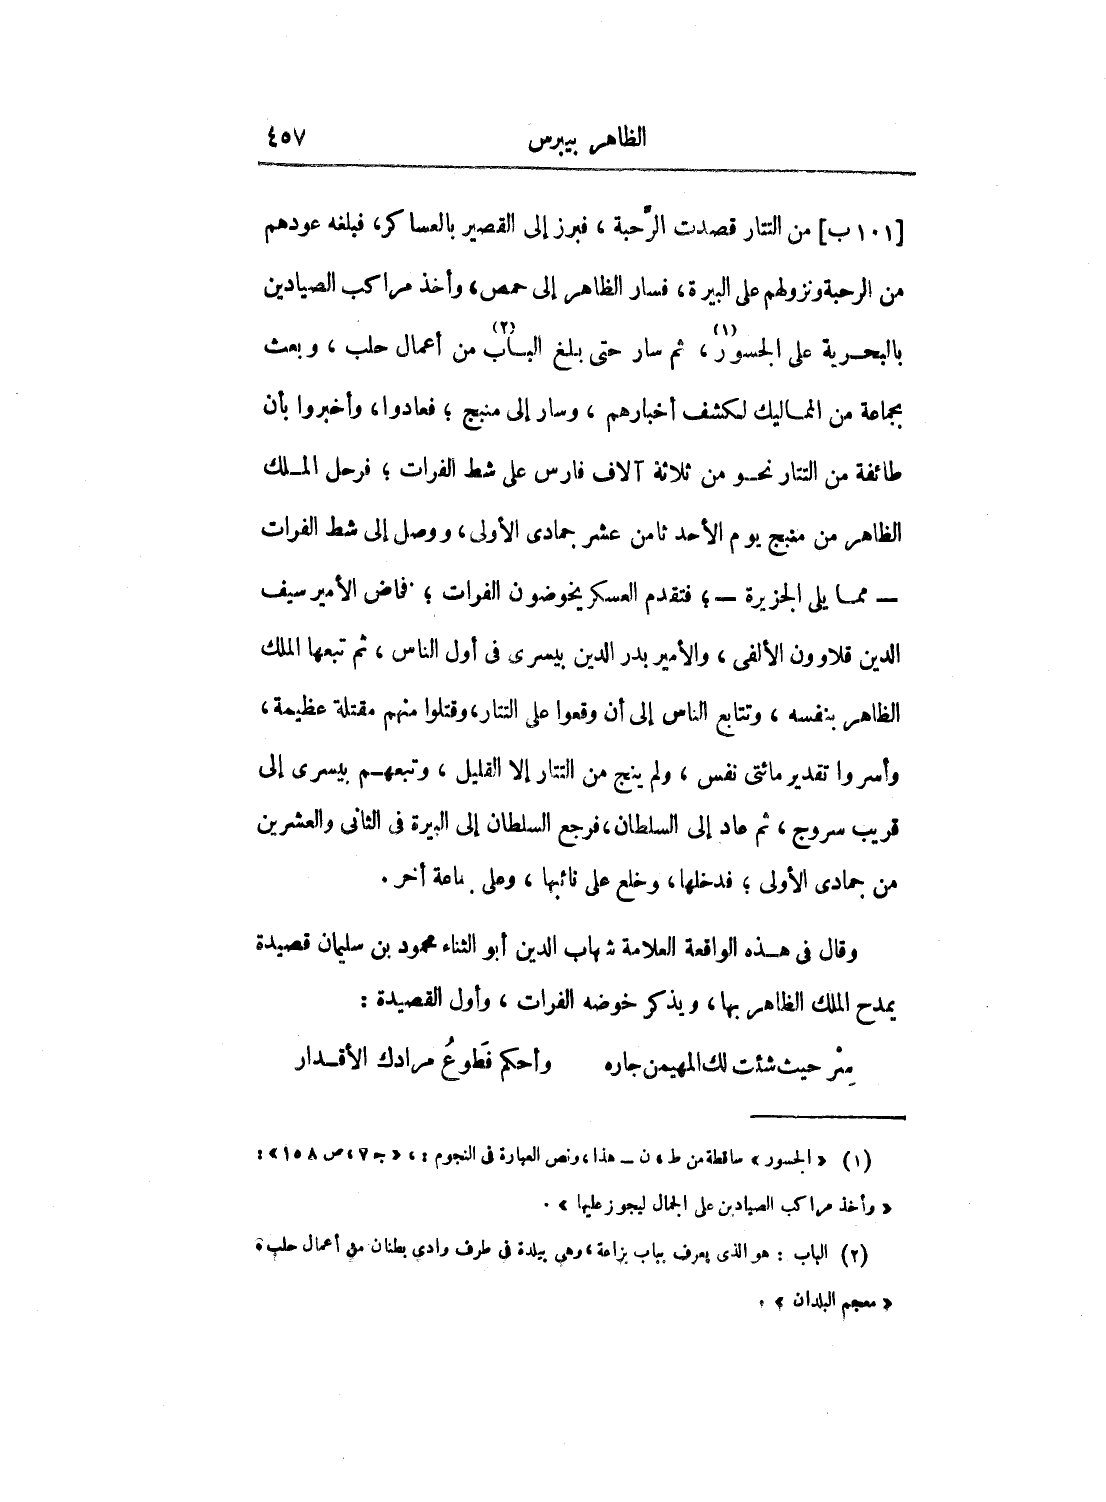 الظاهر بيبرس ٤٥٧
[١٠١ ب] من التتار قصدت الرَّحبة ، فبرز إلى القصير بالعساكر، فبلغه عودهم
من الرحبة ونزولهم على البيرة، فسار الظاهر إلى حمص، وأخذ مراكب الصيادين
بالبحرية على الجسور(١)، ثم سار حتى بلغ الباب(٢) من أعمال حلب ، وبعث
بجماعة من المماليك لكشف أخبارهم ، وسار إلى منبج ؛ فعادوا، وأخبروا بأن
طائفة من التتار نحو من ثلاثة آلاف فارس على شط الفرات ؛ فرحل الملك
الظاهر من منبج يوم الأحد ثامن عشر جمادى الأولى، ووصل إلى شط الفرات
— مما يلى الجزيرة — ؛ فتقدم العسكر يخوضون الفرات ؛ فخاض الأمير سيف
الدين قلاوون الألفى ، والأمير بدر الدين بيسرى فى أول الناس ، ثم تبعها الملك
الظاهر بنفسه ، وتتابع الناس إلى أن وقعوا على التتار، وقتلوا منهم مقتلة عظيمة،
وأسروا تقدير مائتى نفس ، ولم ينج من التتار إلا القليل ، وتبعهم بيسرى إلى
قريب سروج ، ثم عاد إلى السلطان، فرجع السلطان إلى البيرة فى الثانى والعشرين
من جمادى الأولى ؛ فدخلها، وخلع على نائبها ، وعلى جماعة أخر .
وقال فى هذه الواقعة العلامة شهاب الدين أبو الثناء محمود بن سليمان قصيدة
يمدح الملك الظاهر بها، ويذكر خوضه الفرات ، وأول القصيدة :
سِرْ حيث شئت لك المهيمن جاره وأحكم فَطَوعُ مرادك الأقدار
(١) « الجسور » ساقطة من ط ، ن — هذا، ونص العبارة فى النجوم : ، « ج ٧ ، ص ١٥٨ » :
« وأخذ مراكب الصيادين على الجمال ليجوز عليها » .
(٢) الباب : هو الذى يعرف بباب بزاعة ، وهي بليدة فى طرف وادي بطنان من أعمال حلب ،
« معجم البلدان » .